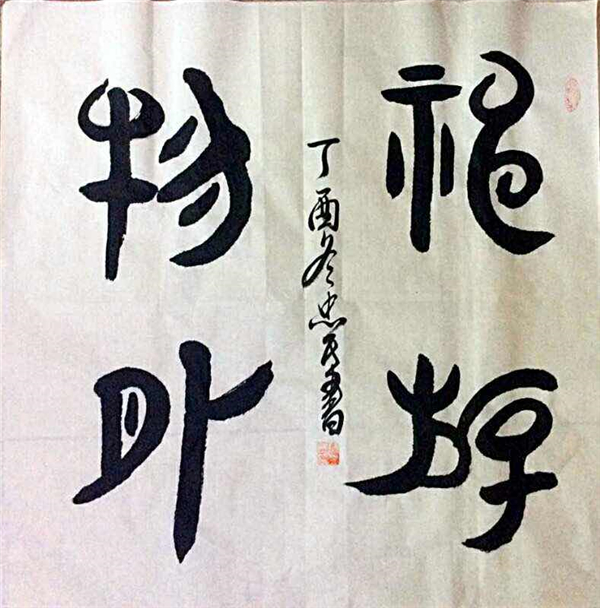 神游
物外
丁酉冬忠民书